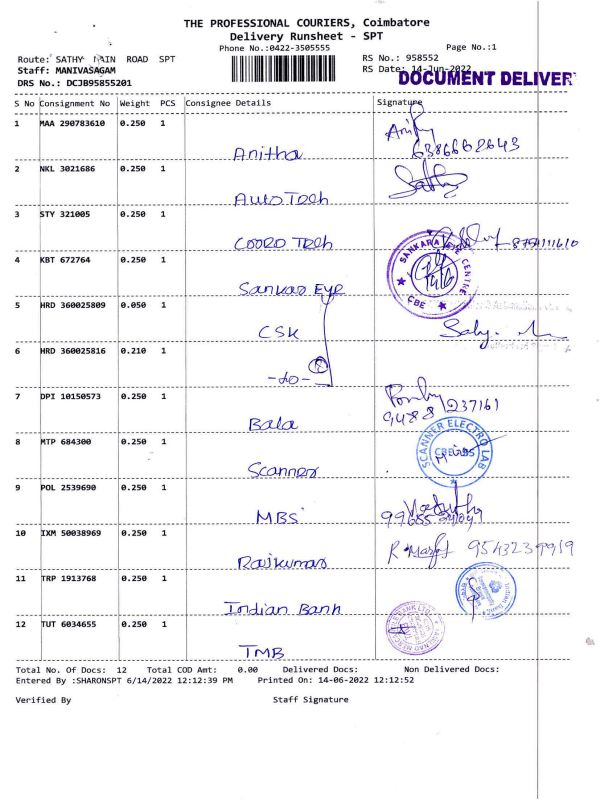 THE PROFESSIONAL COURIERS, Coimbatore
Delivery Runsheet - SPT
Phone No.:0422-3505555
Page No.:1
Route: SATHY MAIN ROAD SPT
RS No.: 958552
Staff: MANIVASAGAM
RS Date: 14-Jun-2022
DOCUMENT DELIVER
DRS No.: DCJB95855201
S No Consignment No Weight PCS Consignee Details Signature
1 MAA 290783610 0.250 1
Anitha 6386662643
2 NKL 3021686 0.250 1
Auto Tech
3 STY 321005 0.250 1
COORD Tech 8754111610
4 KBT 672764 0.250 1
SANKARA EYE CENTRE
CBE
Sankar Eye
5 HRD 360025809 0.050 1
CSK
6 HRD 360025816 0.210 1
-do-
7 DPI 10150573 0.250 1
9488 237161
Bala
8 MTP 684300 0.250 1
SCANNER ELECTRO LAB
Scanner
9 POL 2539690 0.250 1
MBS
10 IXM 50038969 0.250 1
Rajkumar
11 TRP 1913768 0.250 1
Indian Bank
12 TUT 6034655 0.250 1
TMB
Total No. Of Docs: 12 Total COD Amt: 0.00 Delivered Docs: Non Delivered Docs:
Entered By :SHARONSPT 6/14/2022 12:12:39 PM Printed On: 14-06-2022 12:12:52
Verified By Staff Signature